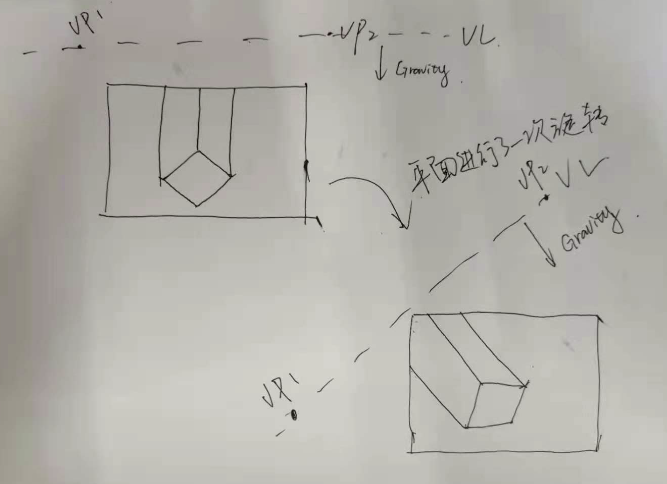 VP1
VP2
VL
Gravity
平面进行了一次旋转
VP2
VL
Gravity
VP1